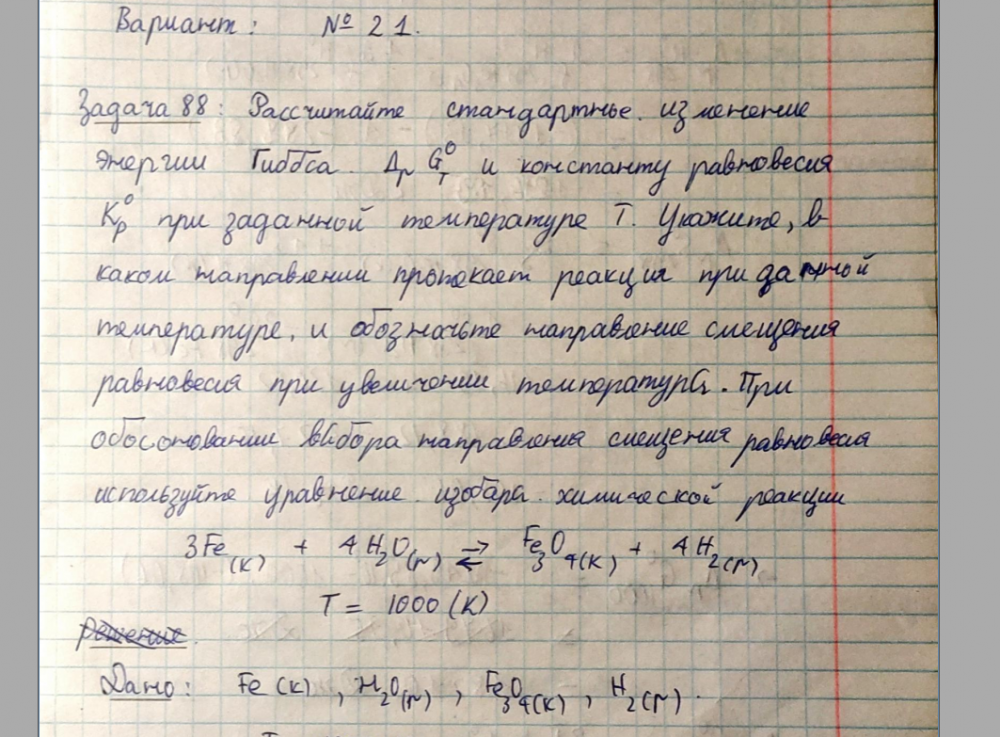 Вариант: № 21.
Задача 88: Рассчитайте стандартные. изменение
энергии Гиббса. ΔrG°T и константу равновесия
K°p при заданной температуре T. Укажите, в
каком направлении протекает реакция при данной
температуре, и обозначьте направление смещения
равновесия при увеличении температуры. При
обосновании выбора направления смещения равновесия
используйте уравнение. изобара. химической реакции
3Fe(к) + 4H2O(г) ⇄ Fe3O4(к) + 4H2(г)
T = 1000 (K)
Решение.
Дано: Fe(к), H2O(г), Fe3O4(к), H2(г).